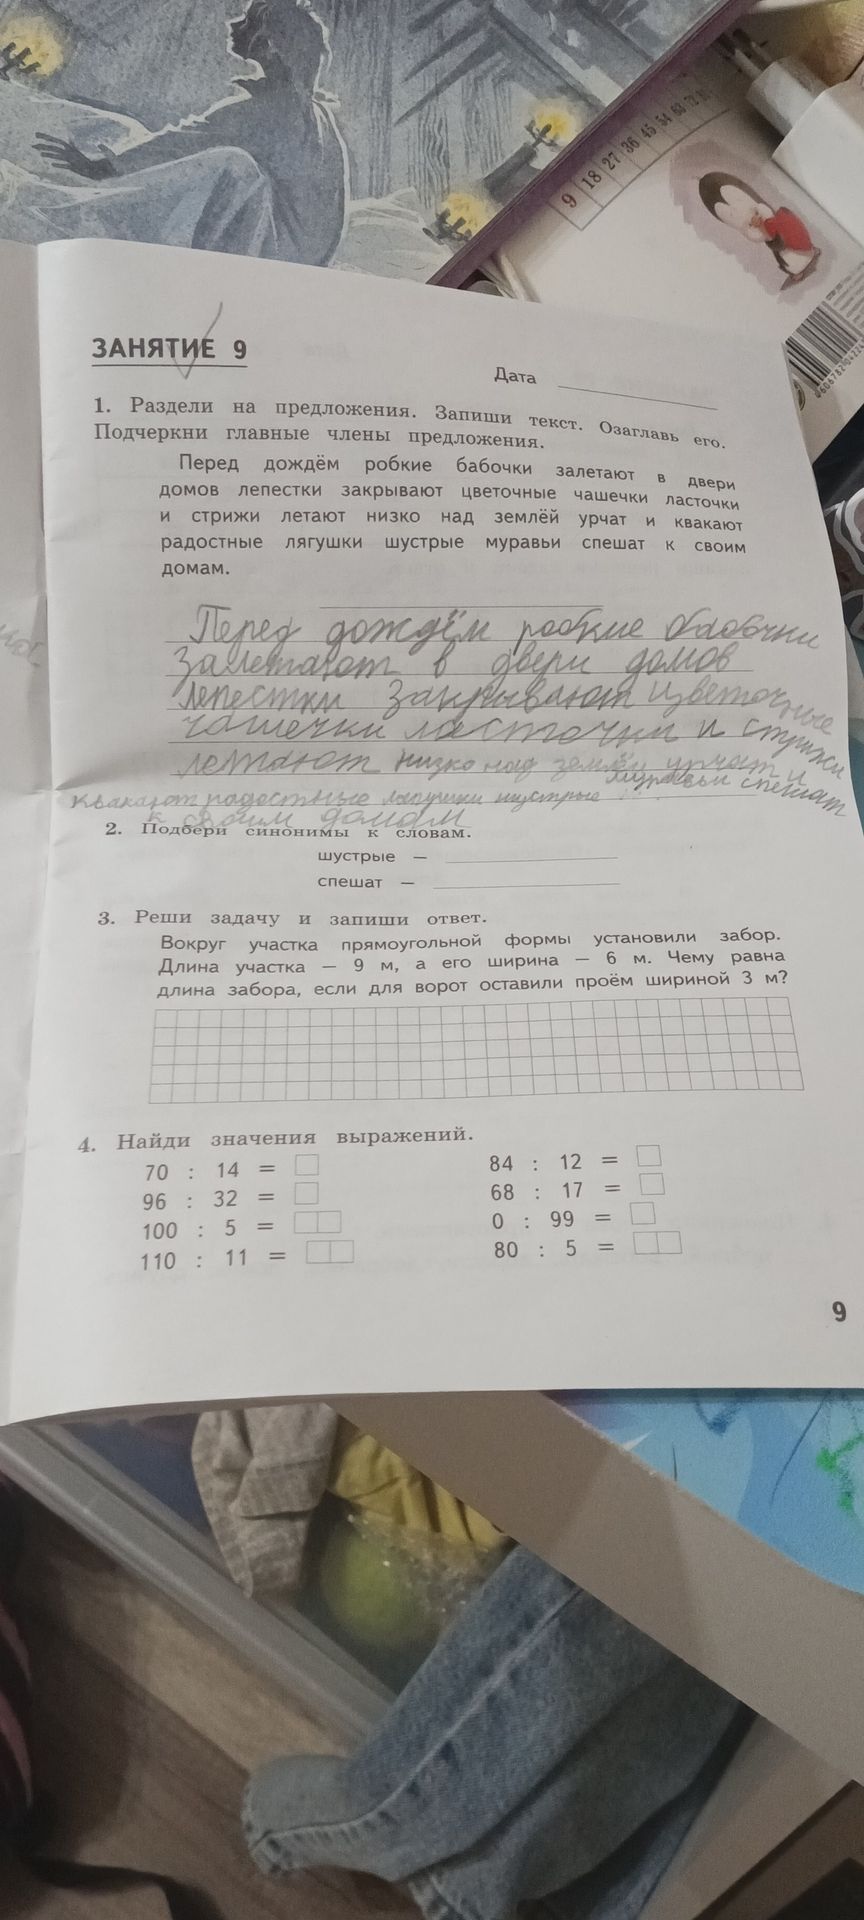 9 18 27 36 45 54 63 72
ЗАНЯТИЕ 9
Дата
1. Раздели на предложения. Запиши текст. Озаглавь его.
Подчеркни главные члены предложения.
Перед дождём робкие бабочки залетают в двери
домов лепестки закрывают цветочные чашечки ласточки
и стрижи летают низко над землёй урчат и квакают
радостные лягушки шустрые муравьи спешат к своим
домам.
Перед дождём робкие бабочки
залетают в двери домов
лепестки закрывают цветочные
чашечки ласточки и стрижи
летают низко над землёй урчат и
квакают радостные лягушки шустрые муравьи спешат
к своим домам
2. Подбери синонимы к словам.
шустрые —
спешат —
3. Реши задачу и запиши ответ.
Вокруг участка прямоугольной формы установили забор.
Длина участка — 9 м, а его ширина — 6 м. Чему равна
длина забора, если для ворот оставили проём шириной 3 м?
4. Найди значения выражений.
70 : 14 =
96 : 32 =
100 : 5 =
110 : 11 =
84 : 12 =
68 : 17 =
0 : 99 =
80 : 5 =
9